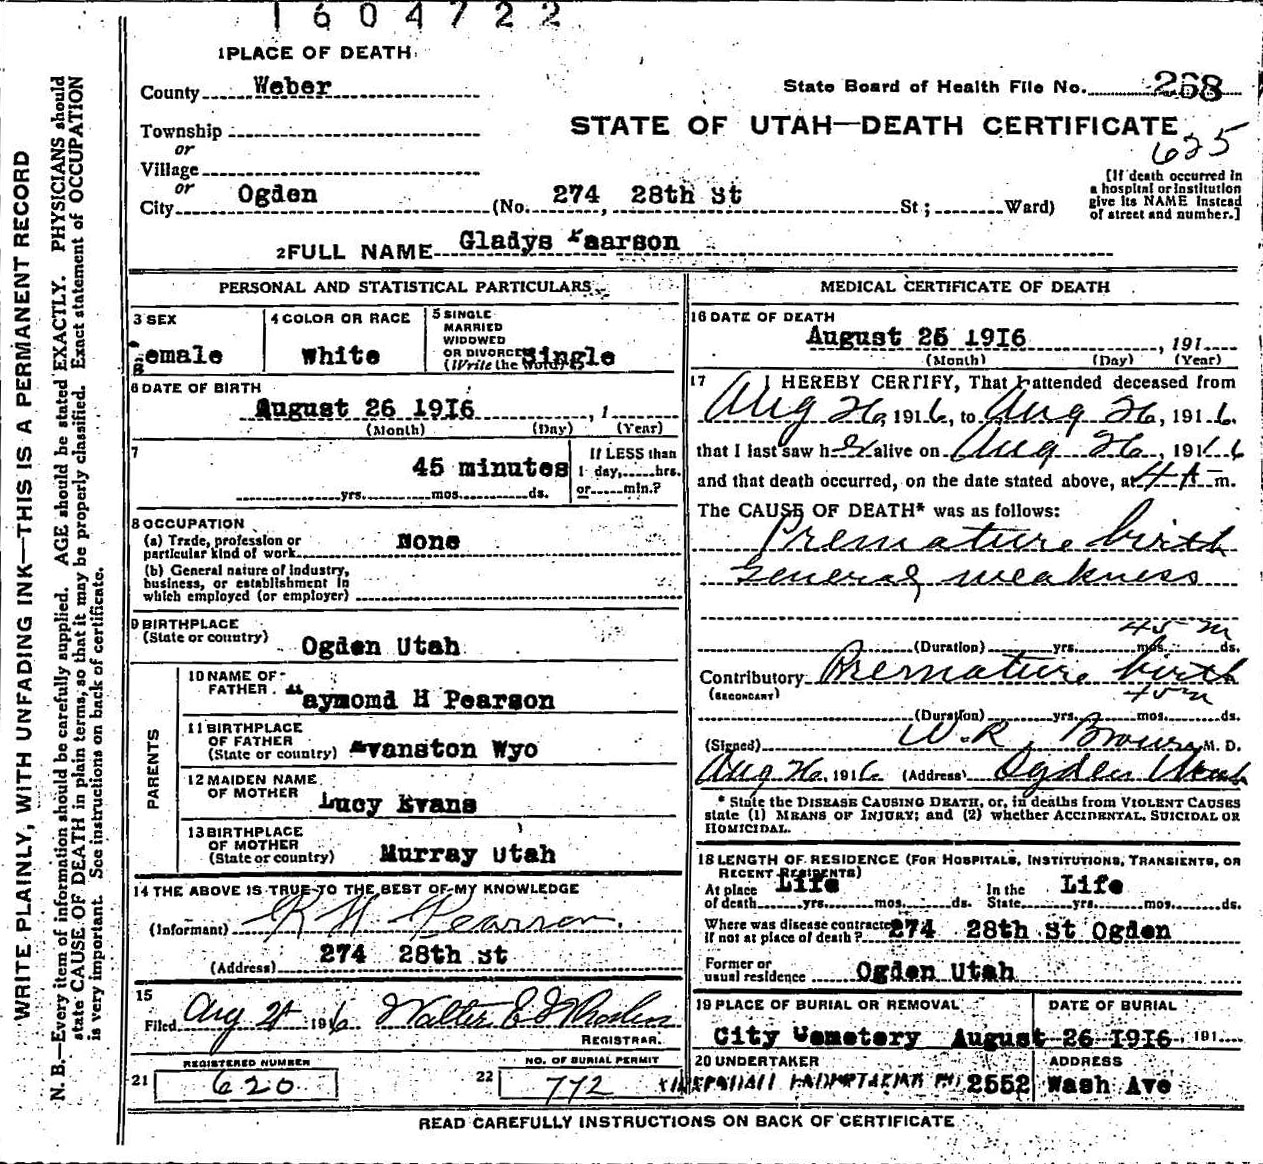 1604722
1 PLACE OF DEATH
County Weber
State Board of Health File No. 268
Township
STATE OF UTAH—DEATH CERTIFICATE
or
625
Village
or
City Ogden (No. 274, 28th St St; Ward)
[If death occurred in
a hospital or institution
give its NAME instead
of street and number.]
2 FULL NAME Gladys Paarson
PERSONAL AND STATISTICAL PARTICULARS
3 SEX
Female
4 COLOR OR RACE
White
5 SINGLE
MARRIED
WIDOWED
OR DIVORCED
(Write the word)
Single
6 DATE OF BIRTH
August 26 1916, 1
(Month) (Day) (Year)
7
45 minutes
yrs. mos. ds.
If LESS than
1 day, hrs.
or min.?
8 OCCUPATION
(a) Trade, profession or
particular kind of work None
(b) General nature of industry,
business, or establishment in
which employed (or employer)
9 BIRTHPLACE
(State or country) Ogden Utah
PARENTS
10 NAME OF
FATHER aymomd H Pearson
11 BIRTHPLACE
OF FATHER
(State or country) Evanston Wyo
12 MAIDEN NAME
OF MOTHER Lucy Evans
13 BIRTHPLACE
OF MOTHER
(State or country) Murray Utah
14 THE ABOVE IS TRUE TO THE BEST OF MY KNOWLEDGE
(Informant) R H Pearson
(Address) 274 28th St
15
Filed Aug 1916 Walter E
REGISTRAR.
REGISTERED NUMBER
21 620
NO. OF BURIAL PERMIT
22 772
MEDICAL CERTIFICATE OF DEATH
16 DATE OF DEATH
August 26 1916, 191
(Month) (Day) (Year)
17 I HEREBY CERTIFY, That I attended deceased from
Aug 26, 1916, to Aug 26, 1916.
that I last saw her alive on Aug 26, 1916
and that death occurred, on the date stated above, at 4 A m.
The CAUSE OF DEATH* was as follows:
Premature birth
General weakness
45 m
(Duration) yrs. mos. ds.
Contributory Premature birth
(SECONDARY) 45 m
(Duration) yrs. mos. ds.
(Signed) W. R. Brown M. D.
Aug 26, 1916 (Address) Ogden Utah
* State the DISEASE CAUSING DEATH, or, in deaths from VIOLENT CAUSES
state (1) MEANS OF INJURY; and (2) whether ACCIDENTAL, SUICIDAL OR
HOMICIDAL.
18 LENGTH OF RESIDENCE (FOR HOSPITALS, INSTITUTIONS, TRANSIENTS, OR
RECENT RESIDENTS)
At place Life In the Life
of death yrs. mos. ds. State yrs. mos. ds.
Where was disease contracted 274 28th St Ogden
if not at place of death?
Former or
usual residence Ogden Utah
19 PLACE OF BURIAL OR REMOVAL
City Cemetery
DATE OF BURIAL
August 26 1916, 191
20 UNDERTAKER
ADDRESS
2552 Wash Ave
READ CAREFULLY INSTRUCTIONS ON BACK OF CERTIFICATE
WRITE PLAINLY, WITH UNFADING INK—THIS IS A PERMANENT RECORD
N. B.—Every item of information should be carefully supplied. AGE should be stated EXACTLY. PHYSICIANS should
state CAUSE OF DEATH in plain terms, so that it may be properly classified. Exact statement of OCCUPATION
is very important. See instructions on back of certificate.